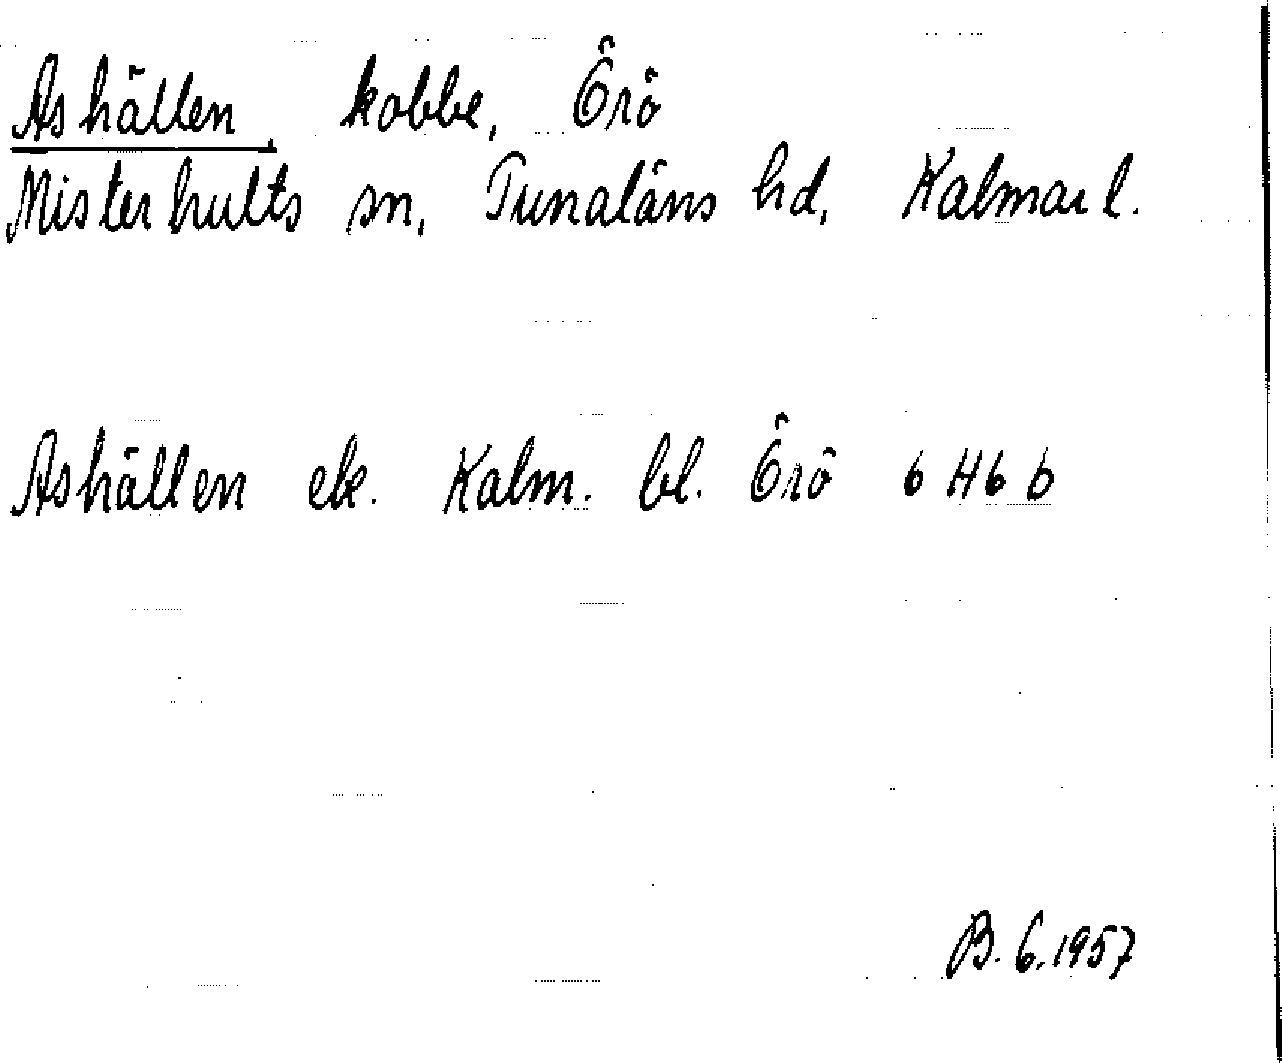 Ashällen, kobbe, Örö
Misterhults sn, Tunaläns hd, Kalmar l.
Ashällen ek. Kalm. bl. Örö 6 H 6 b
B. G. 1957